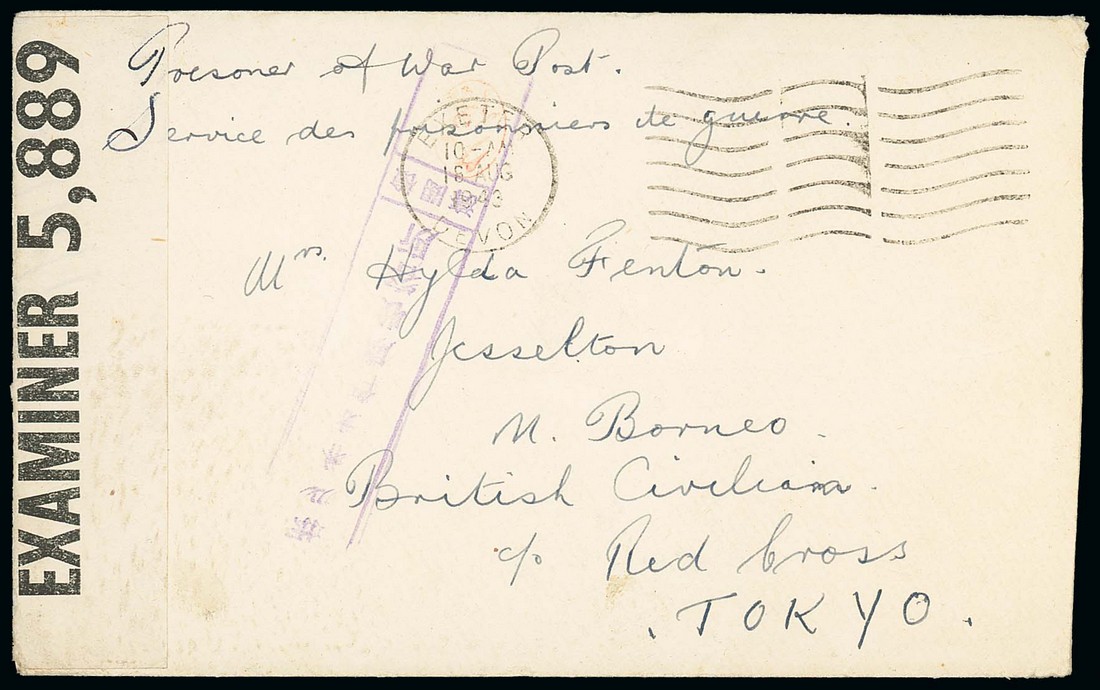 EXAMINER 5,889
Prisoner of War Post.
Service des prisonniers de guerre.
EXETER
10-AM
18 AUG
1943
DEVON
Mrs. Hylda Fenton.
Jesselton
N. Borneo.
British Civilian.
c/o Red Cross
. TOKYO.